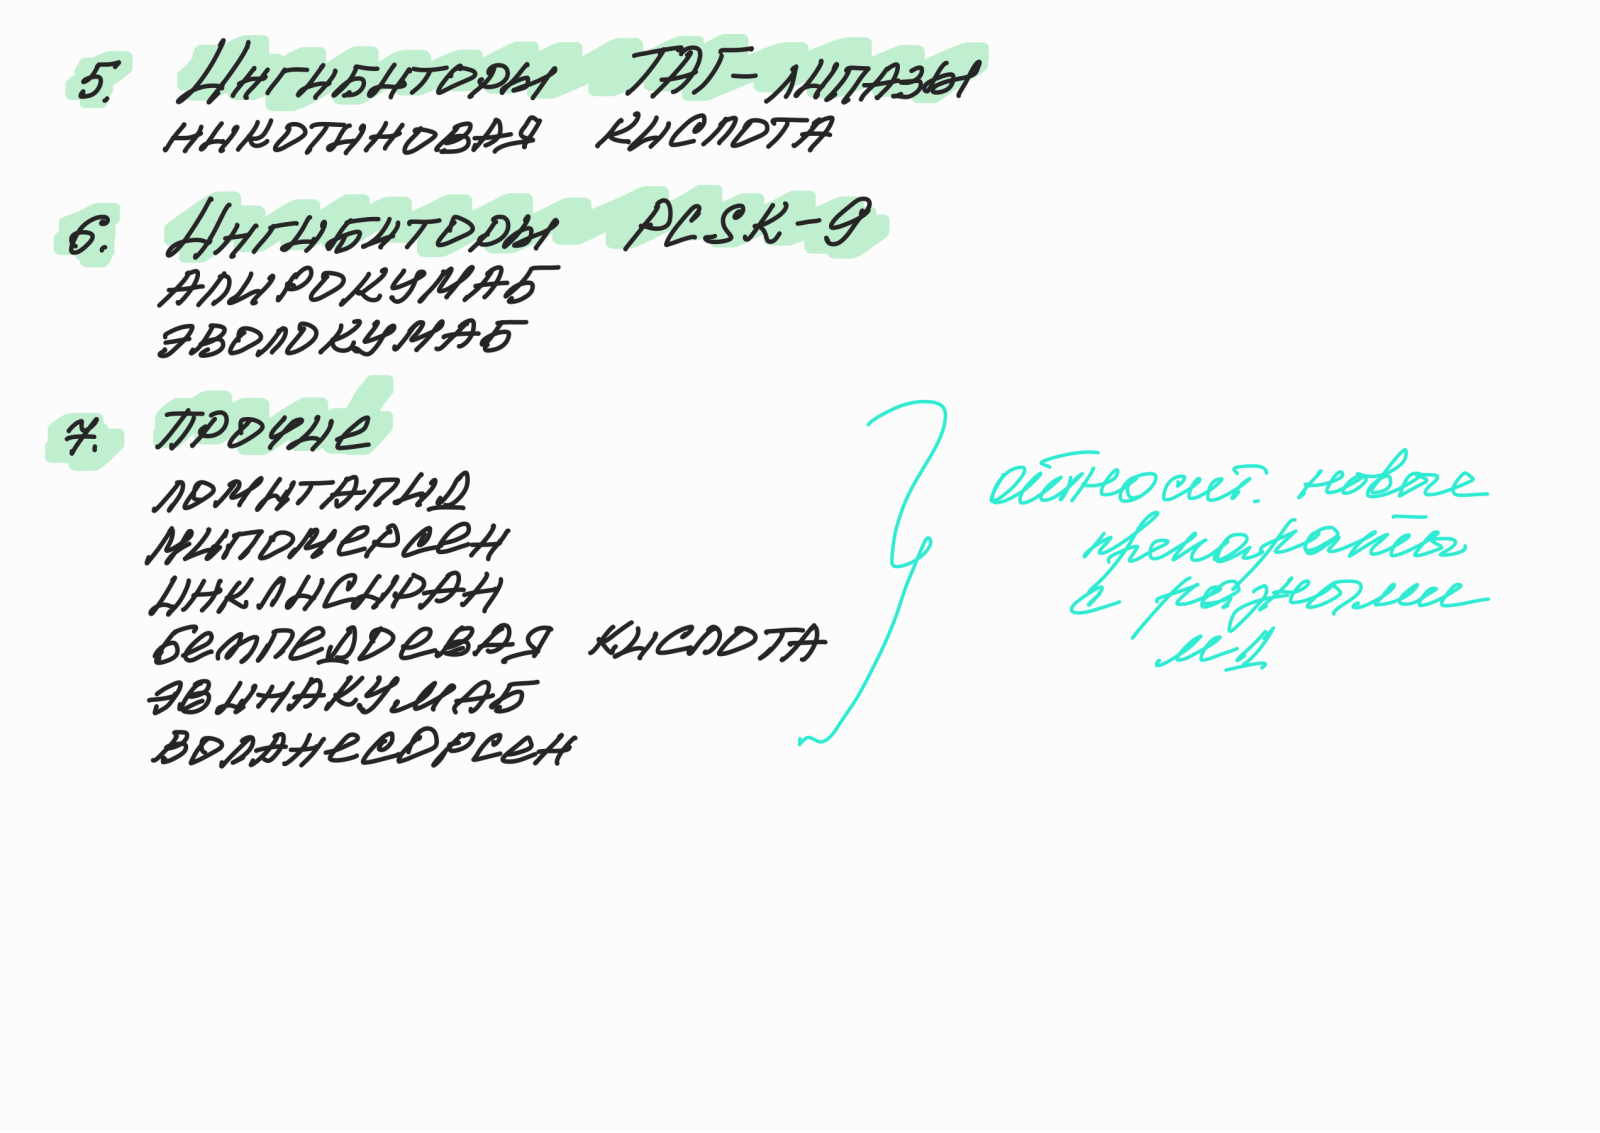 5. Ингибиторы ТАГ-липазы
никотиновая кислота
6. Ингибиторы PCSK-9
алирокумаб
эволокумаб
7. Прочие
ломитапид
мипомерсен
инклисиран
бемпедоевая кислота
эвинакумаб
воланесорсен
относит. новые
препараты
с разными
МД